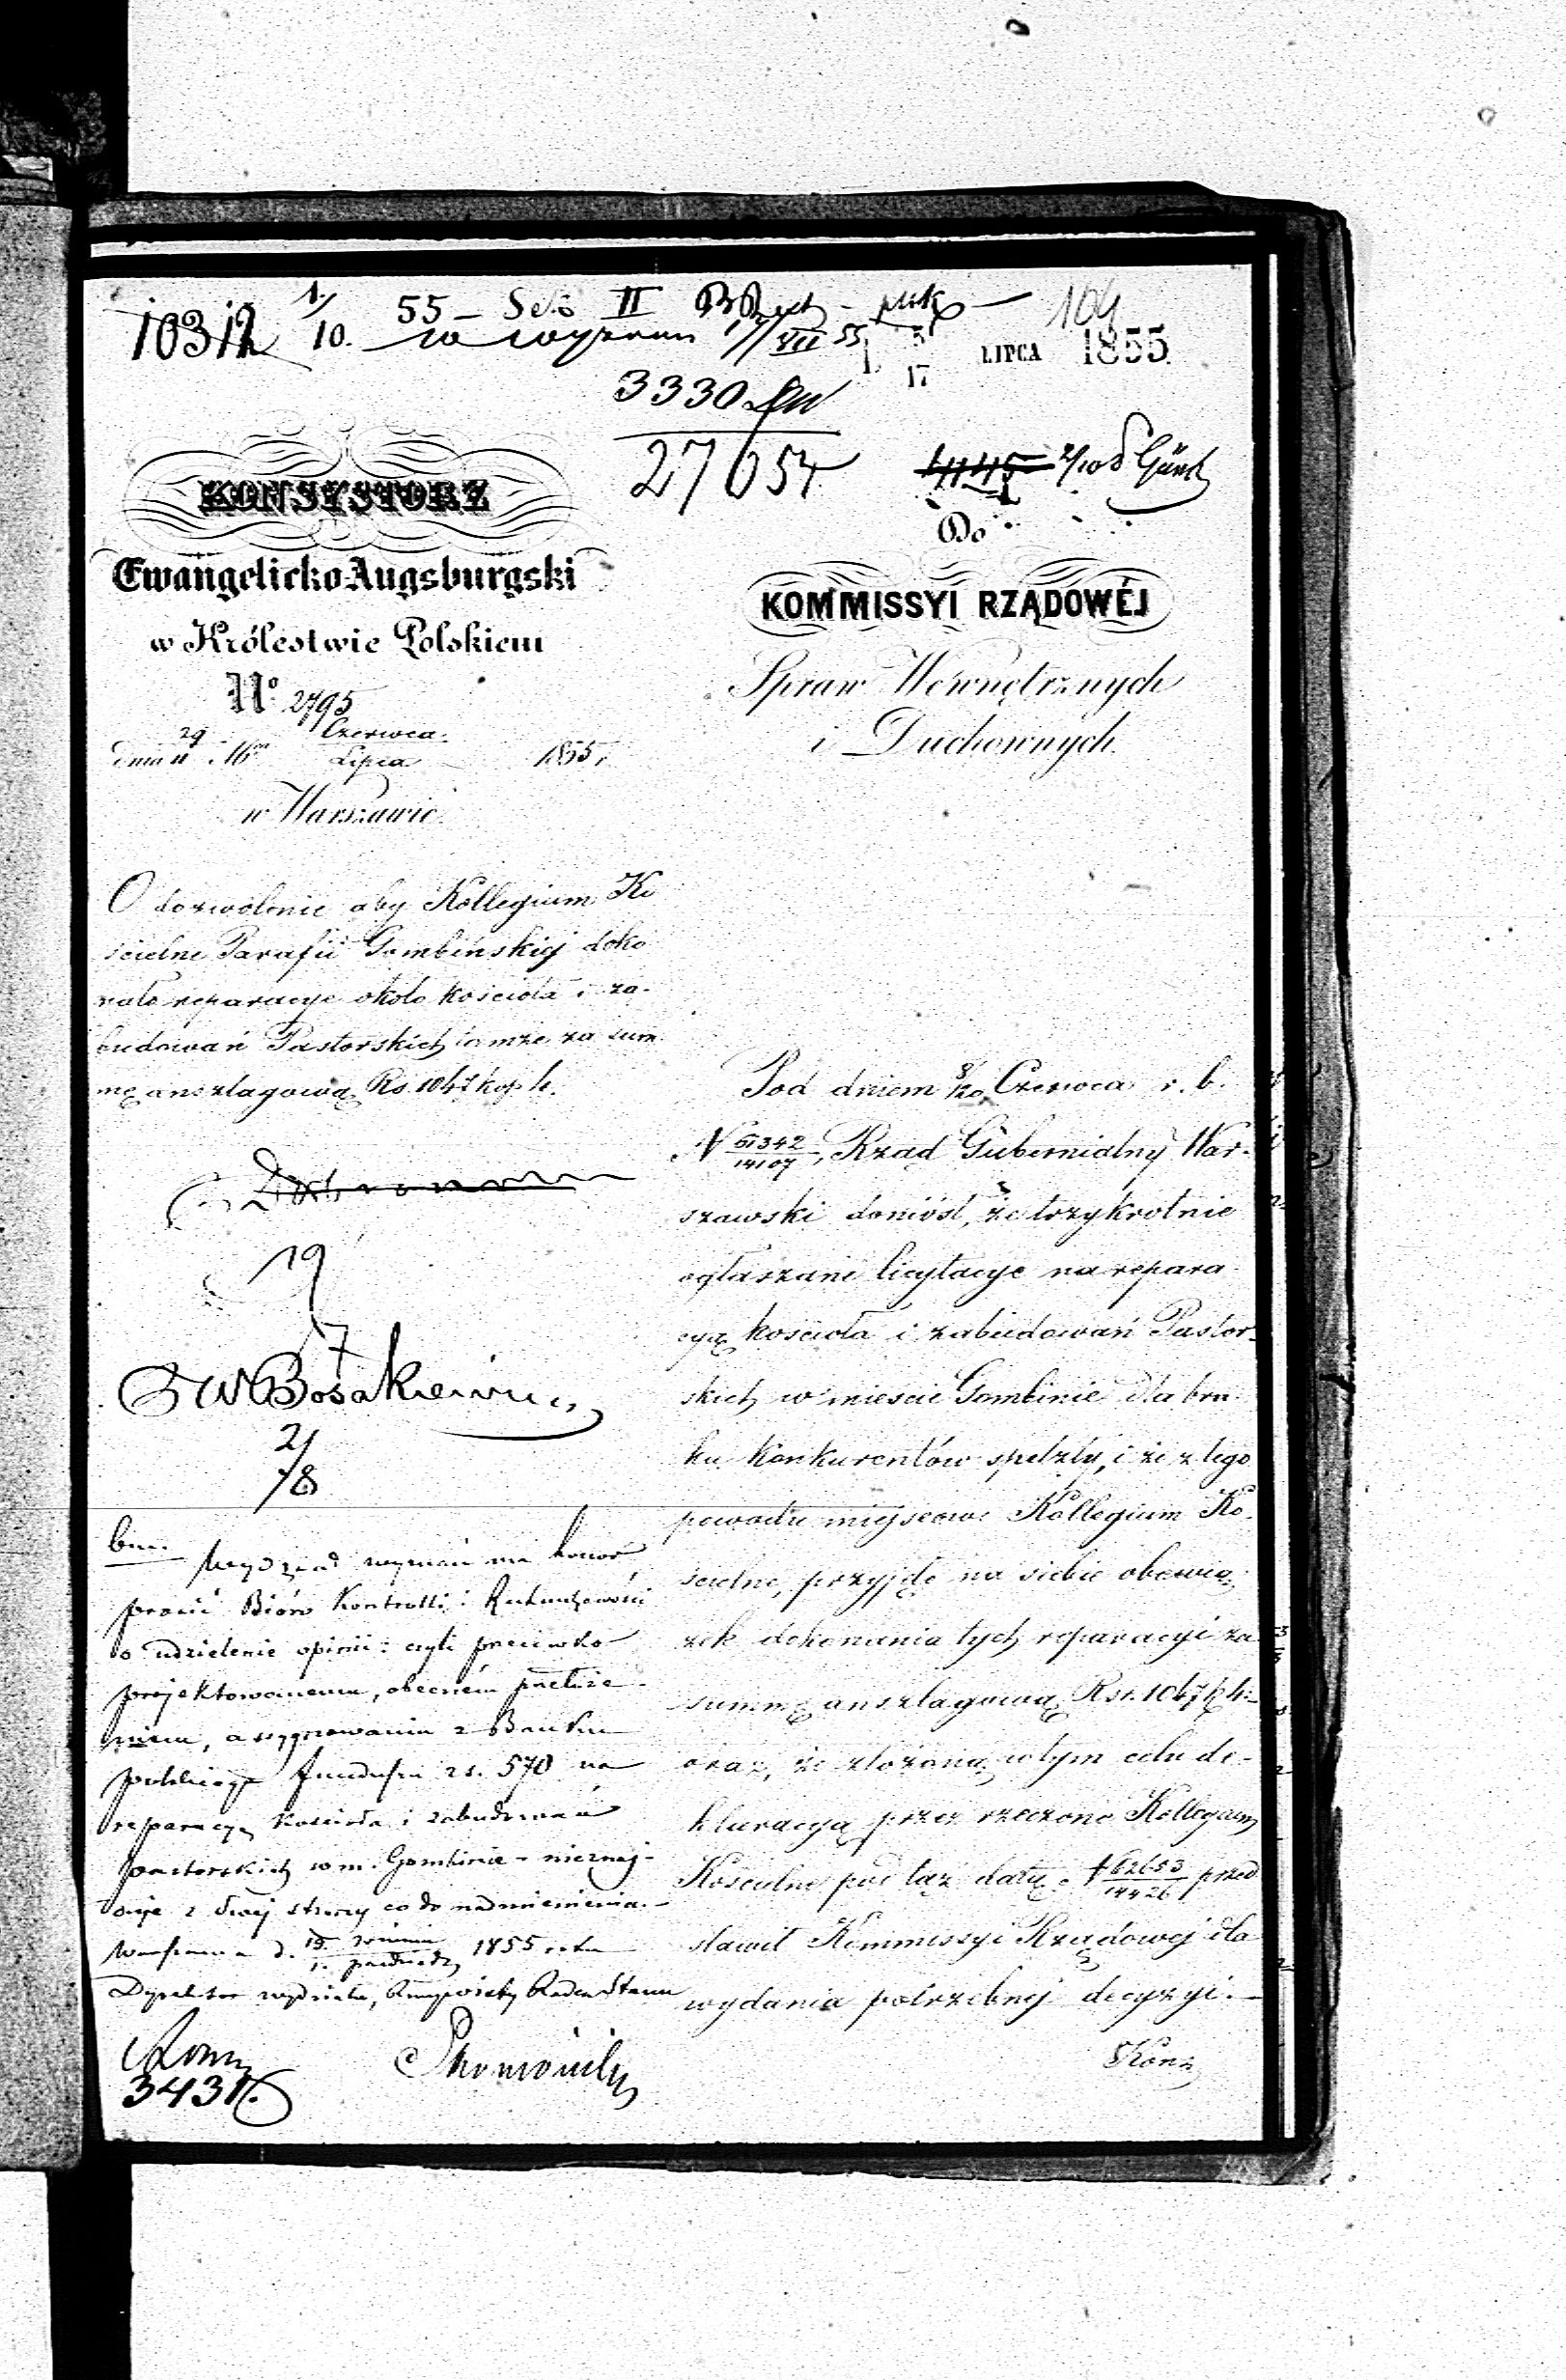 10312
10. 55 — II
w
LIPCA 1855
17
104
3330
27654
4145
KONSYSTORZ
Ewangelicko-Augsburgski
w Królestwie Polskiem
No 2795
dnia 29 Czerwca
11 Lipca 1855 r.
w Warszawie
Do
KOMMISSYI RZĄDOWÉJ
Spraw Wewnętrznych
i Duchownych
O dozwolenie aby Kollegium Ko
ścielne Parafii Gombińskiej doko
nało reparacye około kościoła i za-
budowań Pastorskich tamże za sum
mę anszlagową Rs. 1047 kop. 4.
19
7
Bosakiewicz
2/
78
Wydział ma honor
prosić Bióro Kontrolli i Rachunkowości
o udzielenie opinii: czyli przeciwko
projektowanemu, obecném przełoże-
niem, asygnowaniu z Banku
polskiego funduszu rs. 570 na
reparacyę kościoła i zabudowań
pastorskich w m. Gombinie – nieznaj-
duje z swej strony co do nadmienienia. —
Warszawa d. 1855 roku
Dyrektor wydziału, Rzeczywisty Radca Stanu
3431
Pod dniem 8/20 Czerwca r. b.
N 61342/14107, Rząd Gubernialny War-
szawski doniósł, że trzykrotnie
ogłaszane licytacye na repara-
cyą kościoła i zabudowań Pastor-
skich w mieście Gombinie dla bra-
ku konkurentów spełzły, i że z tego
powodu miejscowe Kollegium Ko-
ścielne, przyjęło na siebie obowią-
zek dokonania tych reparacyi za
summę anszlagową Rsr. 1047 k 4
oraz, że złożoną w tym celu de-
klaracyą przez rzeczone Kollegium
Kościelne pod taż datą N 62653/14426 przed
stawił Kommissyi Rządowej dla
wydania potrzebnej decyzyi. —
Kons